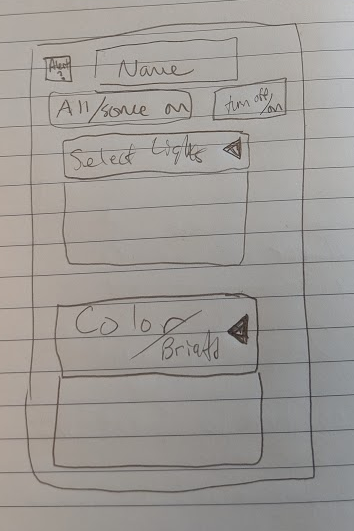 Alert
?
Name
All/some on
turn off/on
Select Lights
Color/
Bright